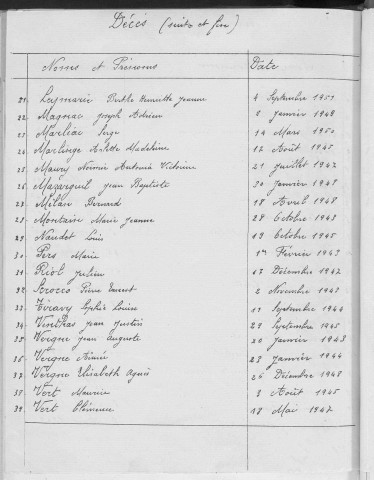 Décès (suite et fin)
Noms et Prénoms Date
21. Leymarie Berthe Henriette Jeanne 4 Septembre 1951
22 Magnac Joseph Adrien 8 Janvier 1948
23 Marliac Serge 14 Mars 1950
24 Madeleine 12 Août 1945
25 Maury Noémie Antonia Victorine 21 Juillet 1947
26 Mazarguil Jean Baptiste 30 Janvier 1948
27 Milan Bernard 18 Avril 1948
28 Montaire Marie Jeanne 28 Octobre 1943
29 Naudet Louis 19 Octobre 1945
30 Pers Marie 1er Février 1943
31 Riol Julien 13 Décembre 1942
32 Pierre 2 Novembre 1943
33 Téravy Sophie Louise 11 Septembre 1944
34 Jean Justin 29 Septembre 1945
35 Vergne Jean Auguste 20 Janvier 1943
36 Vergne Aimée 28 Janvier 1944
37 Vergne Elisabeth Agnès 24 Décembre 1948
38 Vert Maurice 3 Août 1945
39. Vert Clémence 18 Mai 1947